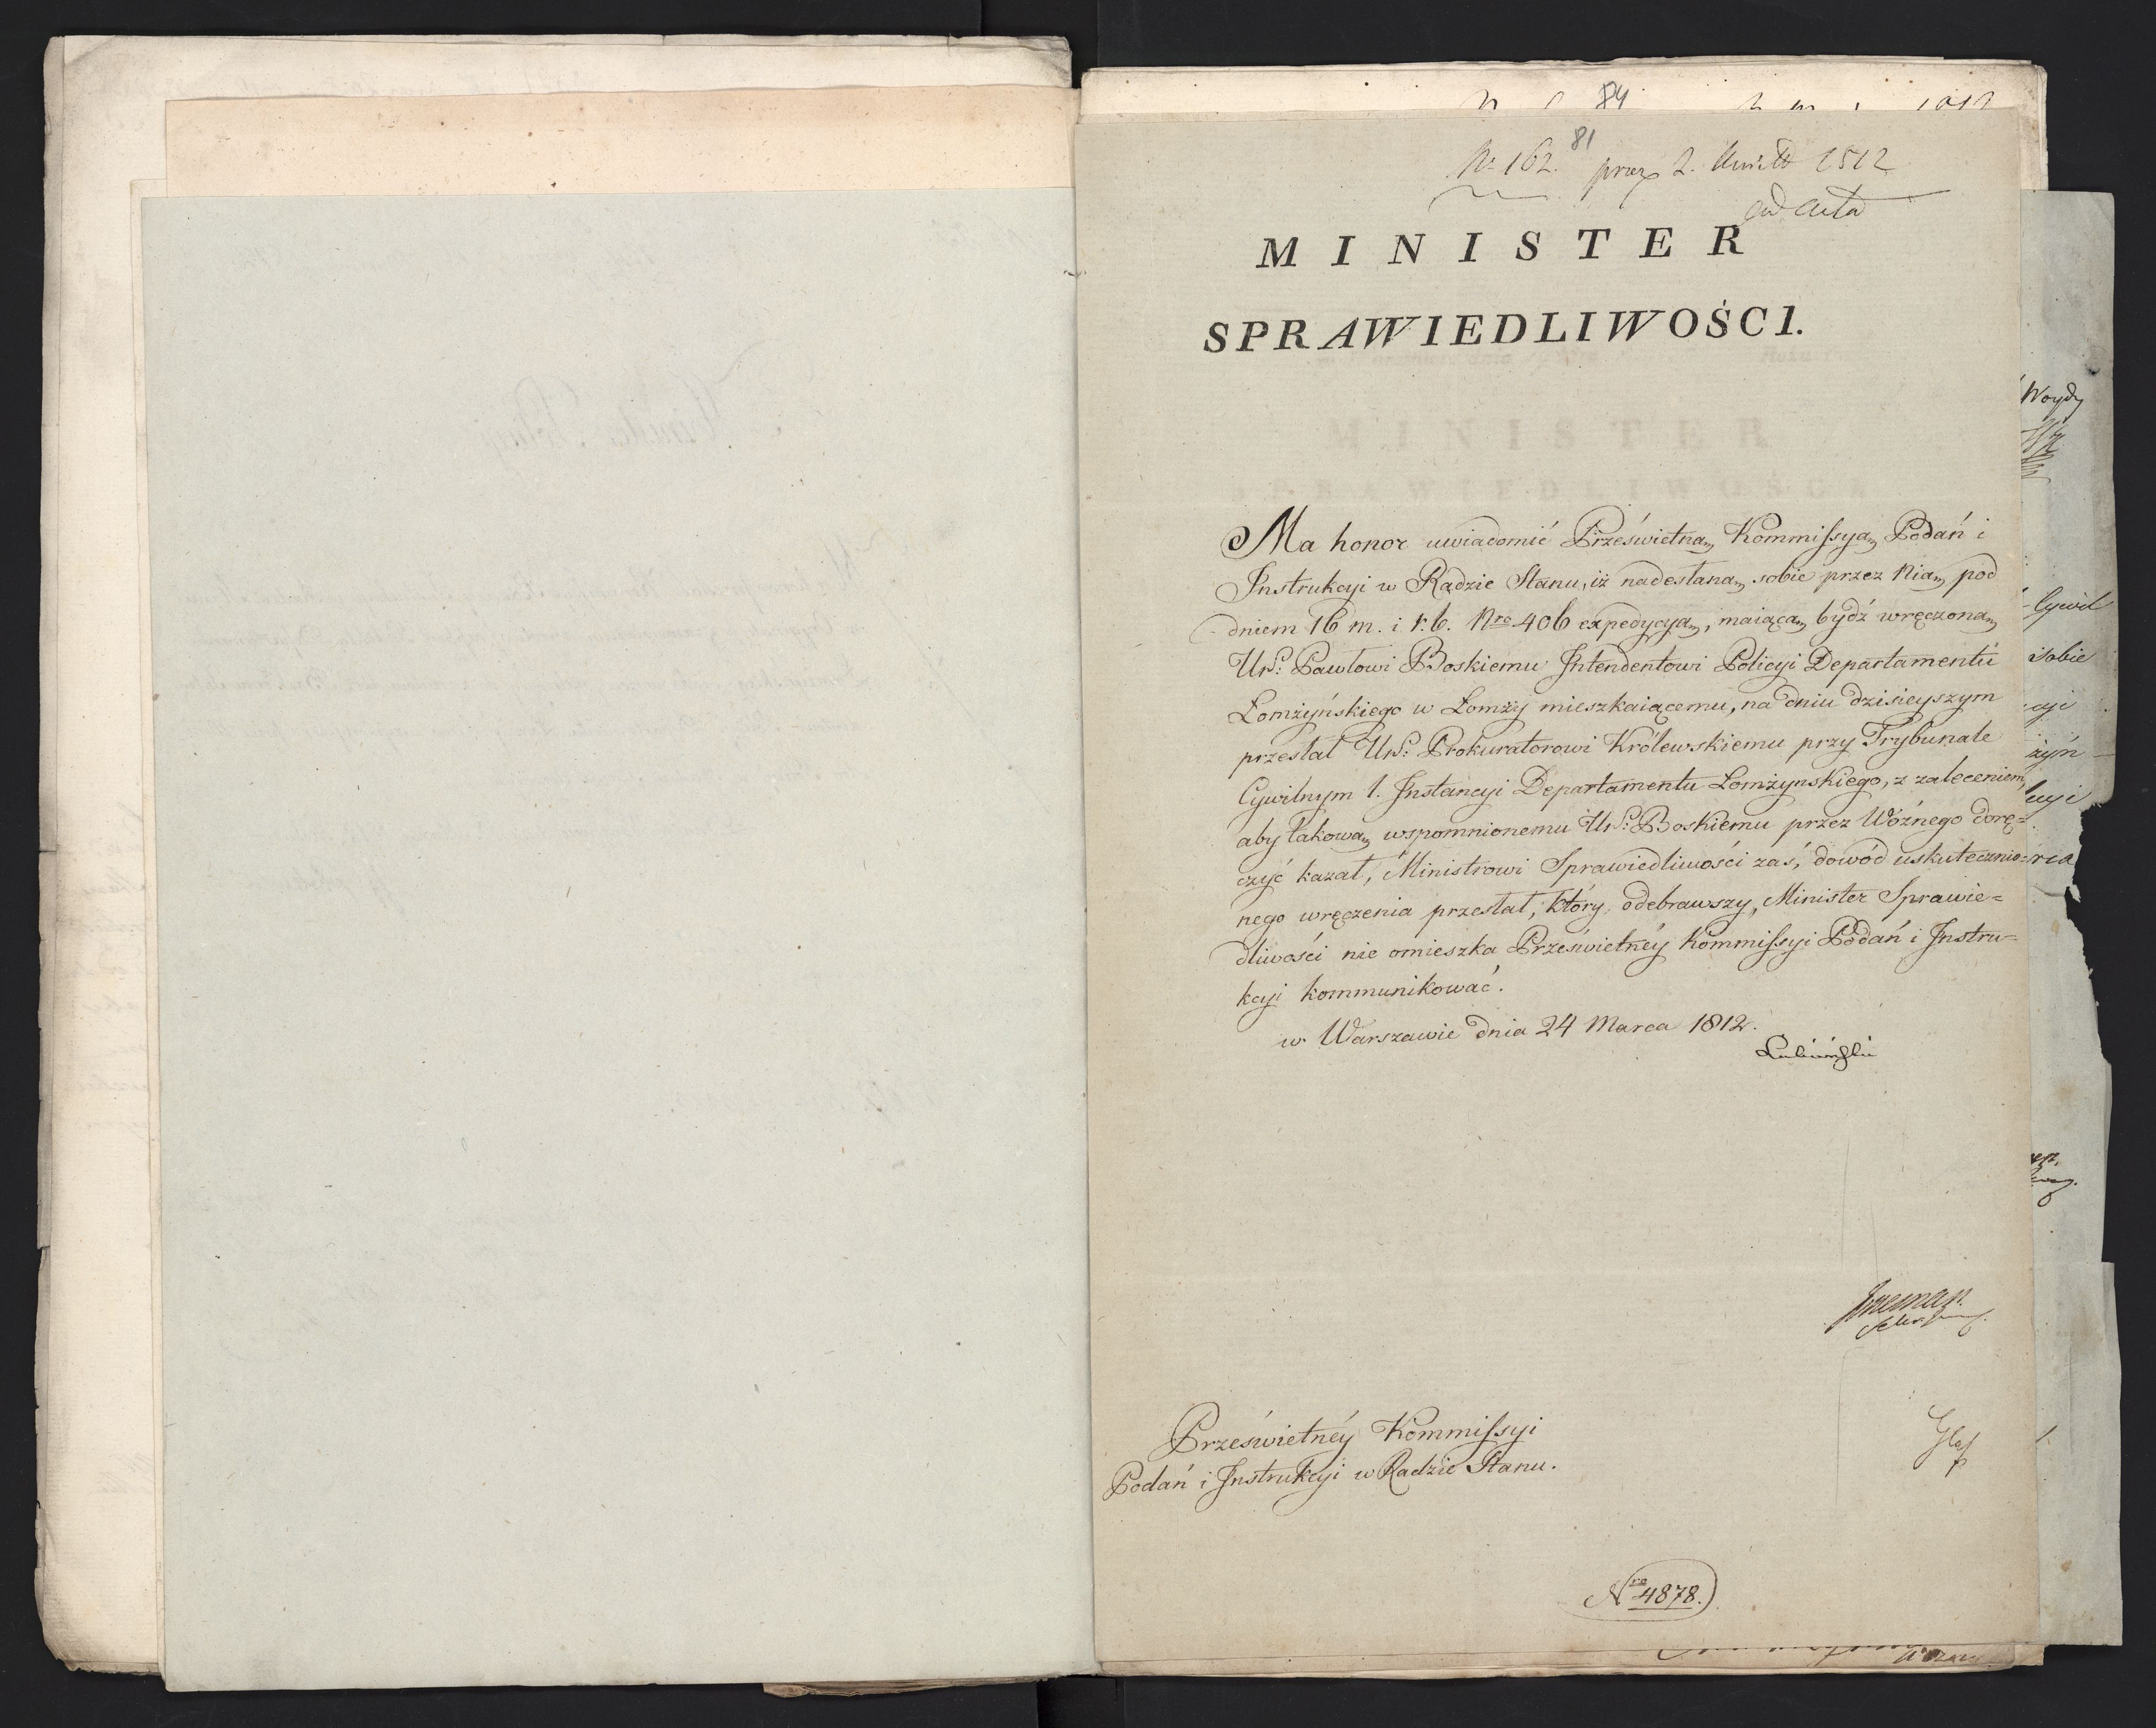 84
81
N: 162. 2. 1812
ad acta
MINISTER
SPRAWIEDLIWOŚCI.
Ma honor uwiadomić Prześwietną Kommissyą Podań i
Instrukcyi w Radzie Stanu, iż nadesłaną sobie przez Nią pod
dniem 16 m. i r. b. Nro 406 expedycyą, maiącą bydź wręczoną
Ur: Pawłowi Boskiemu Intendentowi Policyi Departamentu
Łomżyńskiego w Łomży mieszkaiącemu, na dniu dzisieyszym
przesłał Ur: Prokuratorowi Królewskiemu przy Trybunale
Cywilnym 1. Instancyi Departamentu Łomżynskiego, z zaleceniem,
aby takową wspomnionemu Ur: Boskiemu przez Wóźnego dorę=
czyć kazał, Ministrowi Sprawiedliwości zaś, dowód uskutecznio=
nego wręczenia przesłał, który odebrawszy, Minister Sprawie=
dliwości nie omieszka Prześwietnéy Kommissyi Podań i Instru=
kcyi kommunikować.
w Warszawie dnia 24 Marca 1812.
Łubieński
Prześwietnéy Kommissyi
Podań i Instrukcyi w Radzie Stanu.
Nro 4878.
Woydy
Cywil
sobie
cyi
żyń